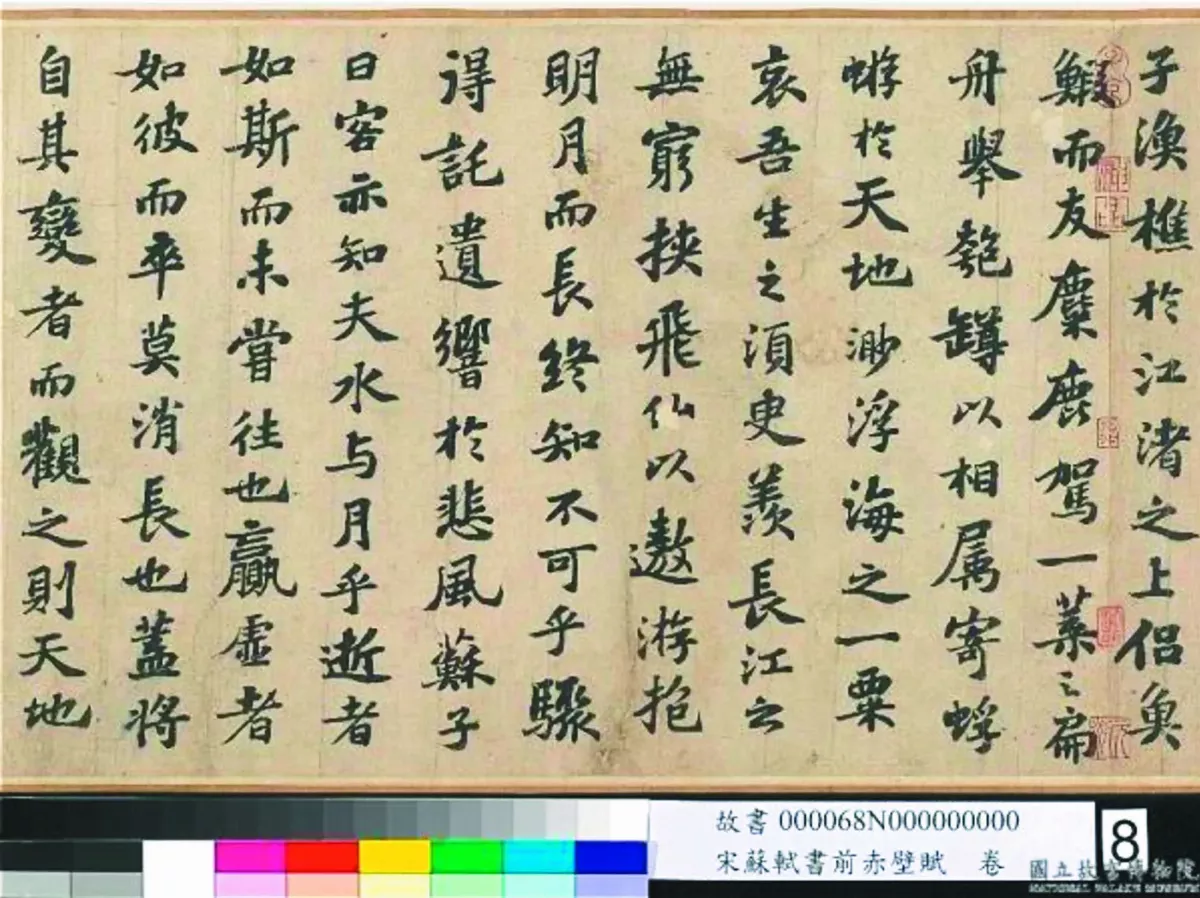 子漁樵於江渚之上侶魚
鰕而友麋鹿駕一葉之扁
舟舉匏罇以相属寄蜉
蝣於天地渺浮海之一粟
哀吾生之須臾羨長江之
無窮挾飛仙以遨游抱
明月而長終知不可乎驟
得託遺響於悲風蘇子
曰客亦知夫水与月乎逝者
如斯而未嘗往也贏虛者
如彼而卒莫消長也蓋將
自其變者而觀之則天地
故書 000068N000000000
宋蘇軾書前赤壁賦 卷
8
國立故宮博物院
NATIONAL PALACE MUSEUM